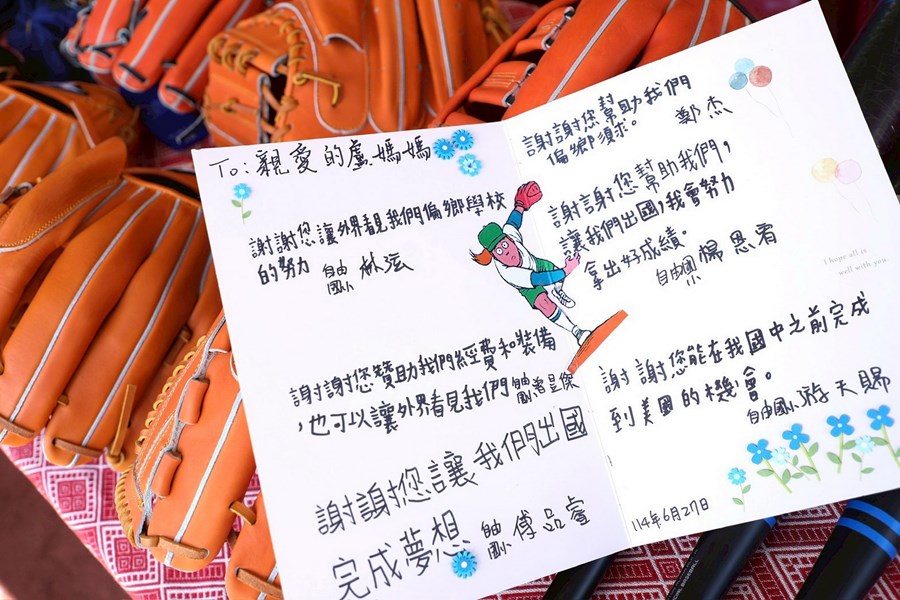 To:親愛的盧媽媽
謝謝您讓外界看見我們偏鄉學校
的努力 自由國小 林浤
謝謝您贊助我們經費和裝備
,也可以讓外界看見我們 自由國小
謝謝您讓我們出國
完成夢想 自由國小 傅品睿
謝謝您幫助我們
偏鄉須求。 鄭杰
謝謝您幫助我們,
讓我們出國,我會努力
拿出好成績。自由國小 楊恩宥
I hope all is
well with you.
謝謝您能在我國中之前完成
到美國的機會。
自由國小 游天賜
114年6月27日